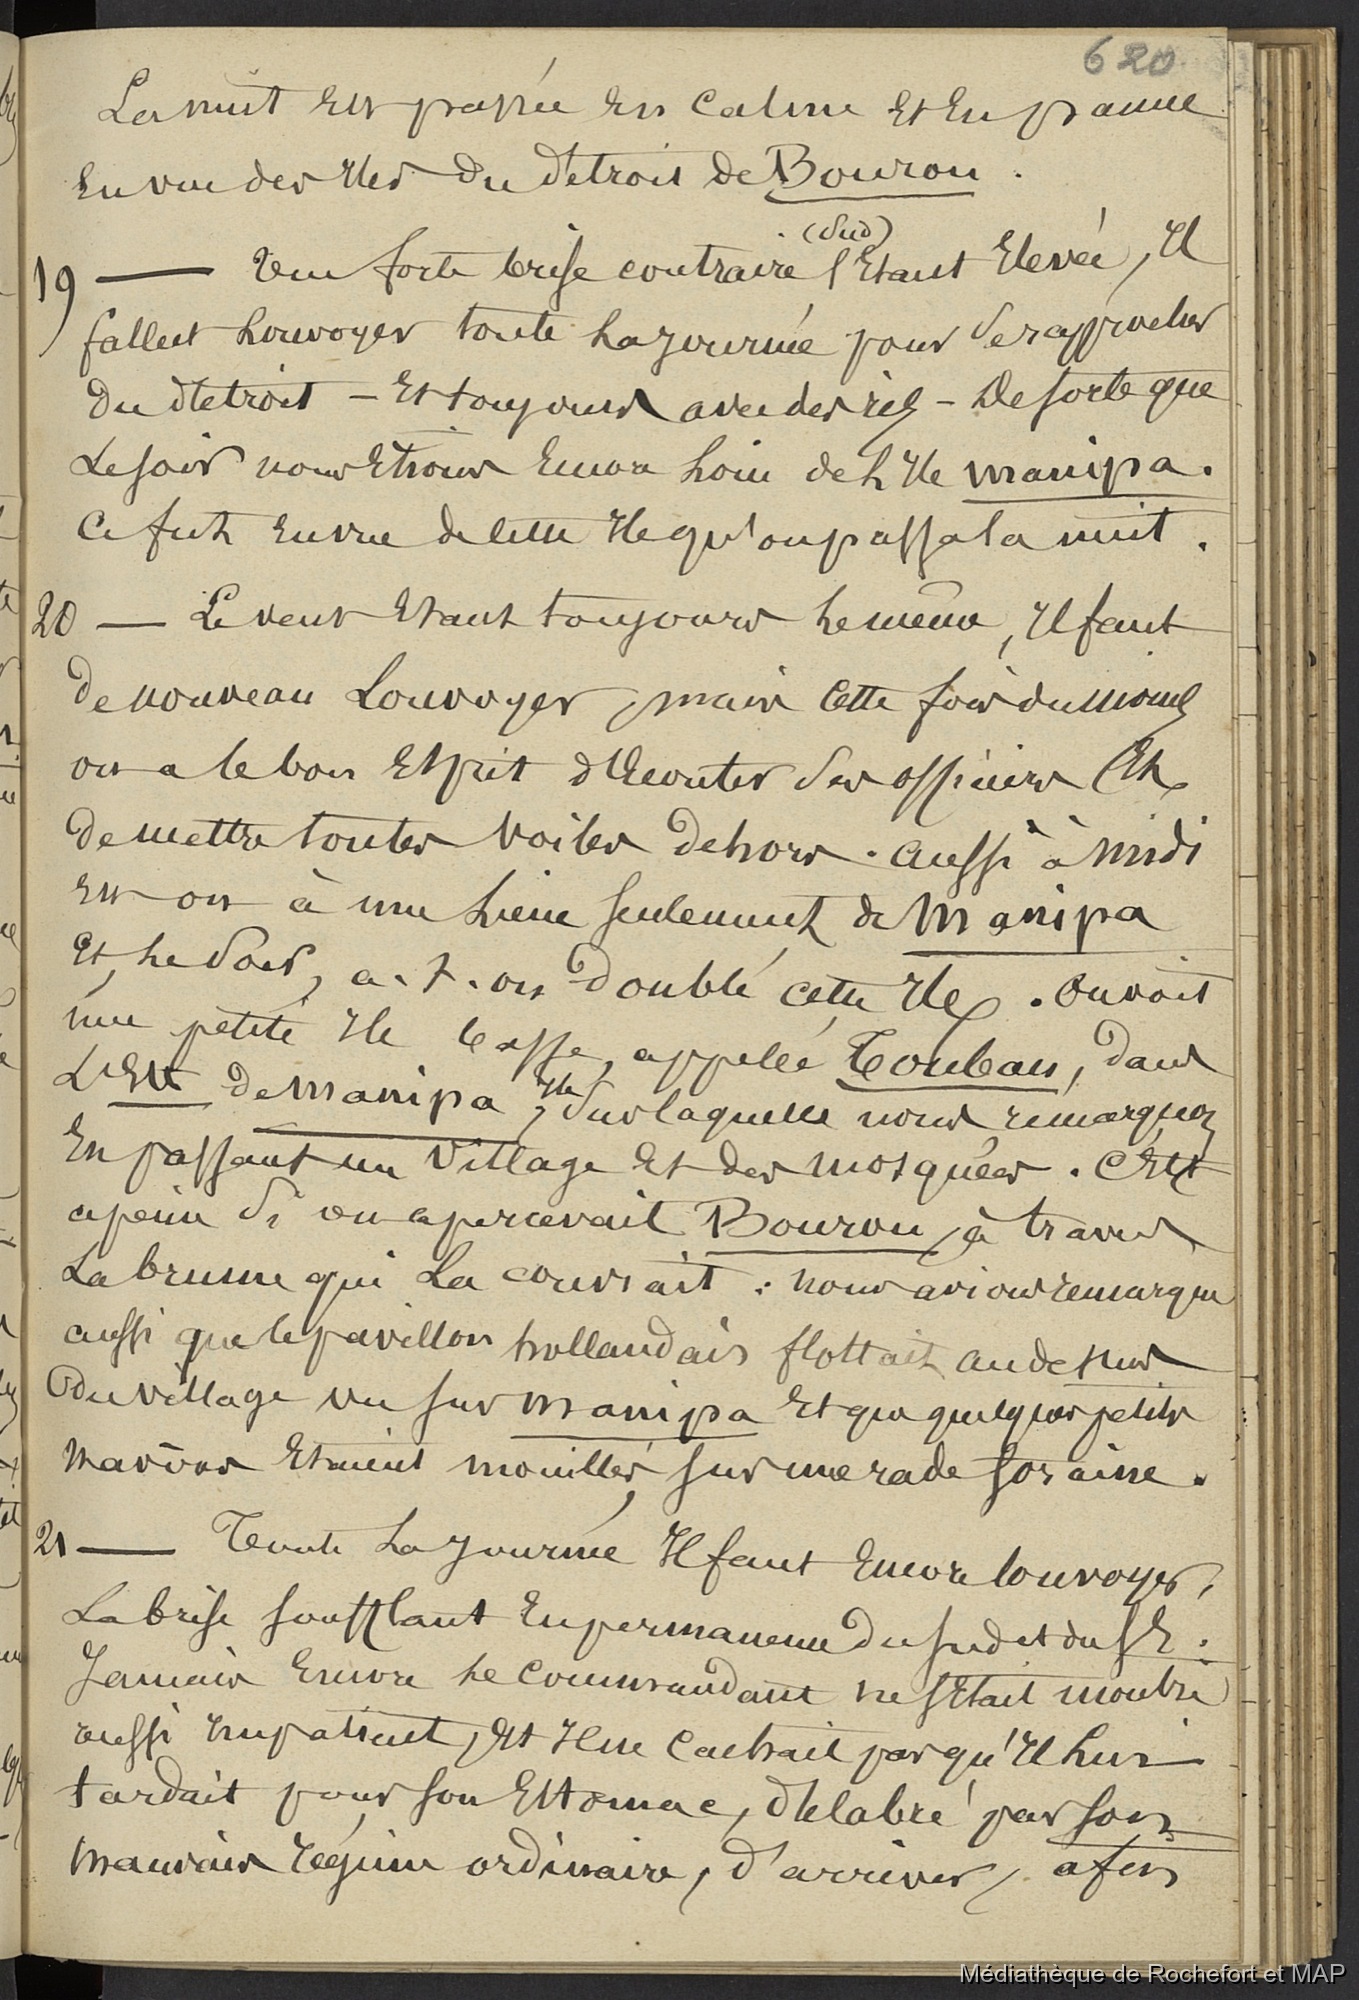 620
La nuit est passée en calme et en panne
en vue des Iles du détroit de Bouron.
(Sud)
19 — Une forte brise contraire s'étant élevée, Il
fallut louvoyer toute la journée pour se rapprocher
du détroit – Et toujours avec des ris – De sorte que
le soir nous étions encore loin de l'Ile Manipa.
Ce fut en vue de cette Ile qu'on passa la nuit.
20 — Le vent étant toujours le même, Il faut
de nouveau louvoyer, mais cette fois du moins
on a le bon esprit d'écouter ses officiers Et
de mettre toutes voiles dehors. Aussi à midi
est on à une lieue seulement de Manipa
et, le soir, a-t-on doublé cette Ile. On voit
une petite Ile basse, appelée Touban, dans
L'Est de Manipa, Ile sur laquelle nous remarquons
en passant un village et des mosquées. C'est
à peine si on apercevait Bourou, à travers
la brume qui la couvrait : nous avions remarqué
aussi que le pavillon hollandais flottait au dessus
du village vu sur Manipa et que quelques petits
navires étaient mouillés, sur une rade foraine.
21 — Toute la journée Il faut encore louvoyer,
la brise soufflant en permanence du sud et du SE :
Jamais encore le commandant ne s'était montré
aussi impatient, et Il ne cachait pas qu'Il lui
tardait pour son estomac, délabré par son
mauvais régime ordinaire, d'arriver, afin
Médiathèque de Rochefort et MAP